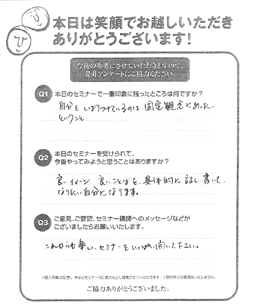 本日は笑顔でお越しいただき
ありがとうございます!
今後の参考にさせていただきますので、
是非アンケートにご協力ください
Q1 本日のセミナーで一番印象に残ったところは何ですか?
自分をしばりつけているのは固定観念だった
ということ
Q2 本日のセミナーを受けられて、
今後やってみようと思うことはありますか?
良いイメージ 良いことばを具体的に話し 書いて
なりたい自分になります。
Q3 ご意見、ご要望、セミナー講師へのメッセージなどが
ございましたらお願いします。
これからも楽しいセミナーをいっぱい開いて下さい。
ご協力ありがとうございました。